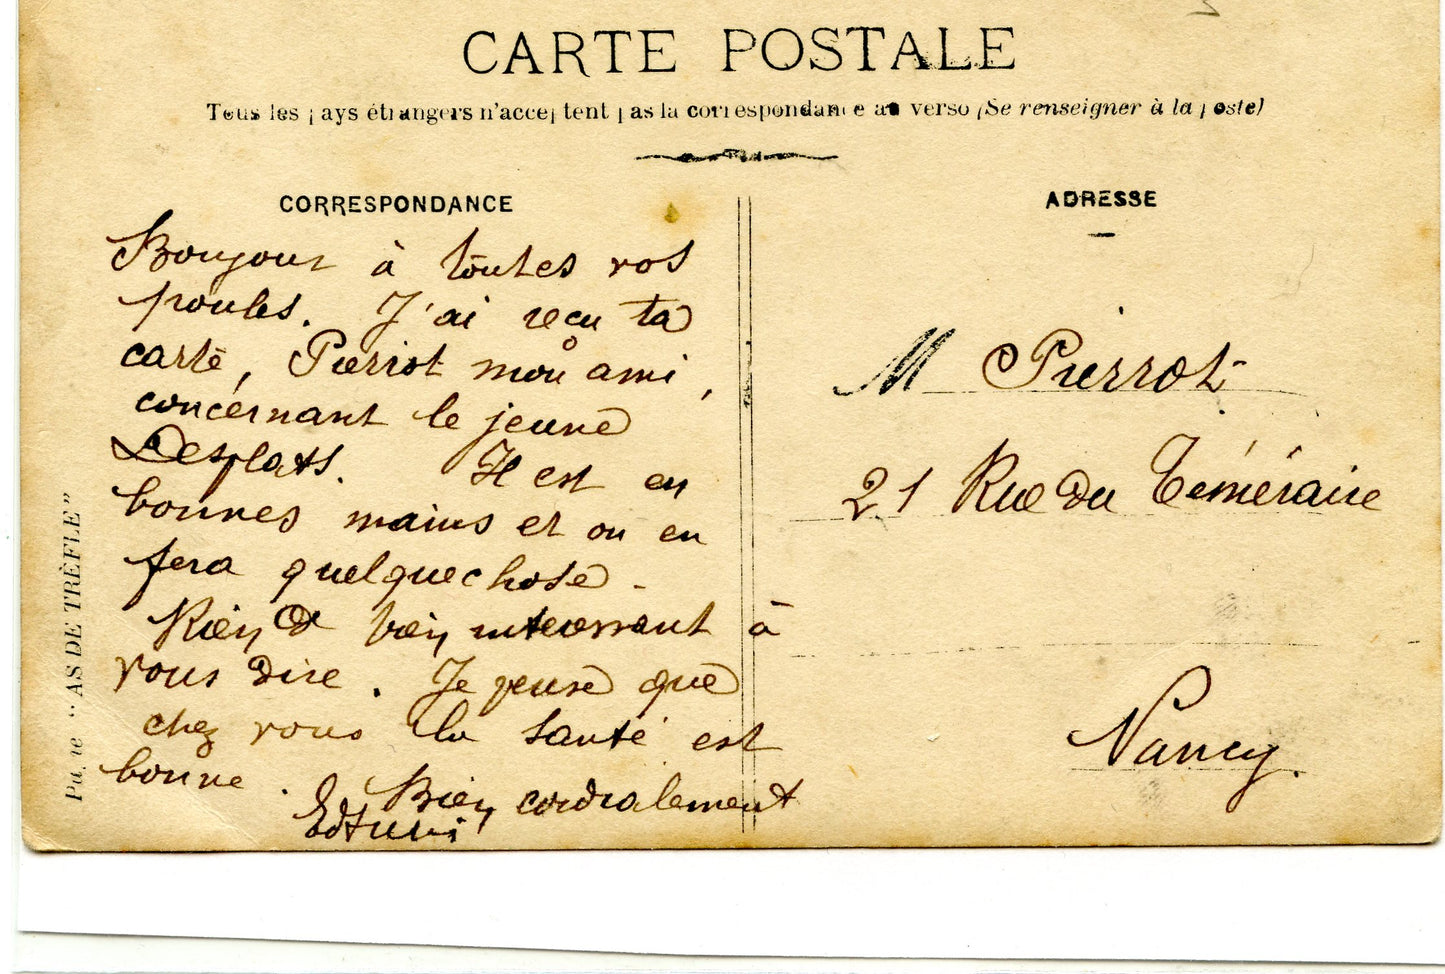 CARTE POSTALE
Tous les pays étrangers n'acceptent pas la correspondance au verso (Se renseigner à la poste)
CORRESPONDANCE
Bonjour à toutes vos
poules. J'ai reçu ta
carte, Pierrot mon ami,
concernant le jeune
Desplats. Il est en
bonnes mains et on en
fera quelque chose -
Rien de bien intéressant à
vous dire. Je pense que
chez vous la santé est
bonne. Bien cordialement
ADRESSE
M Pierrot
21 Rue du Téméraire
Nancy.
"AS DE TRÈFLE"